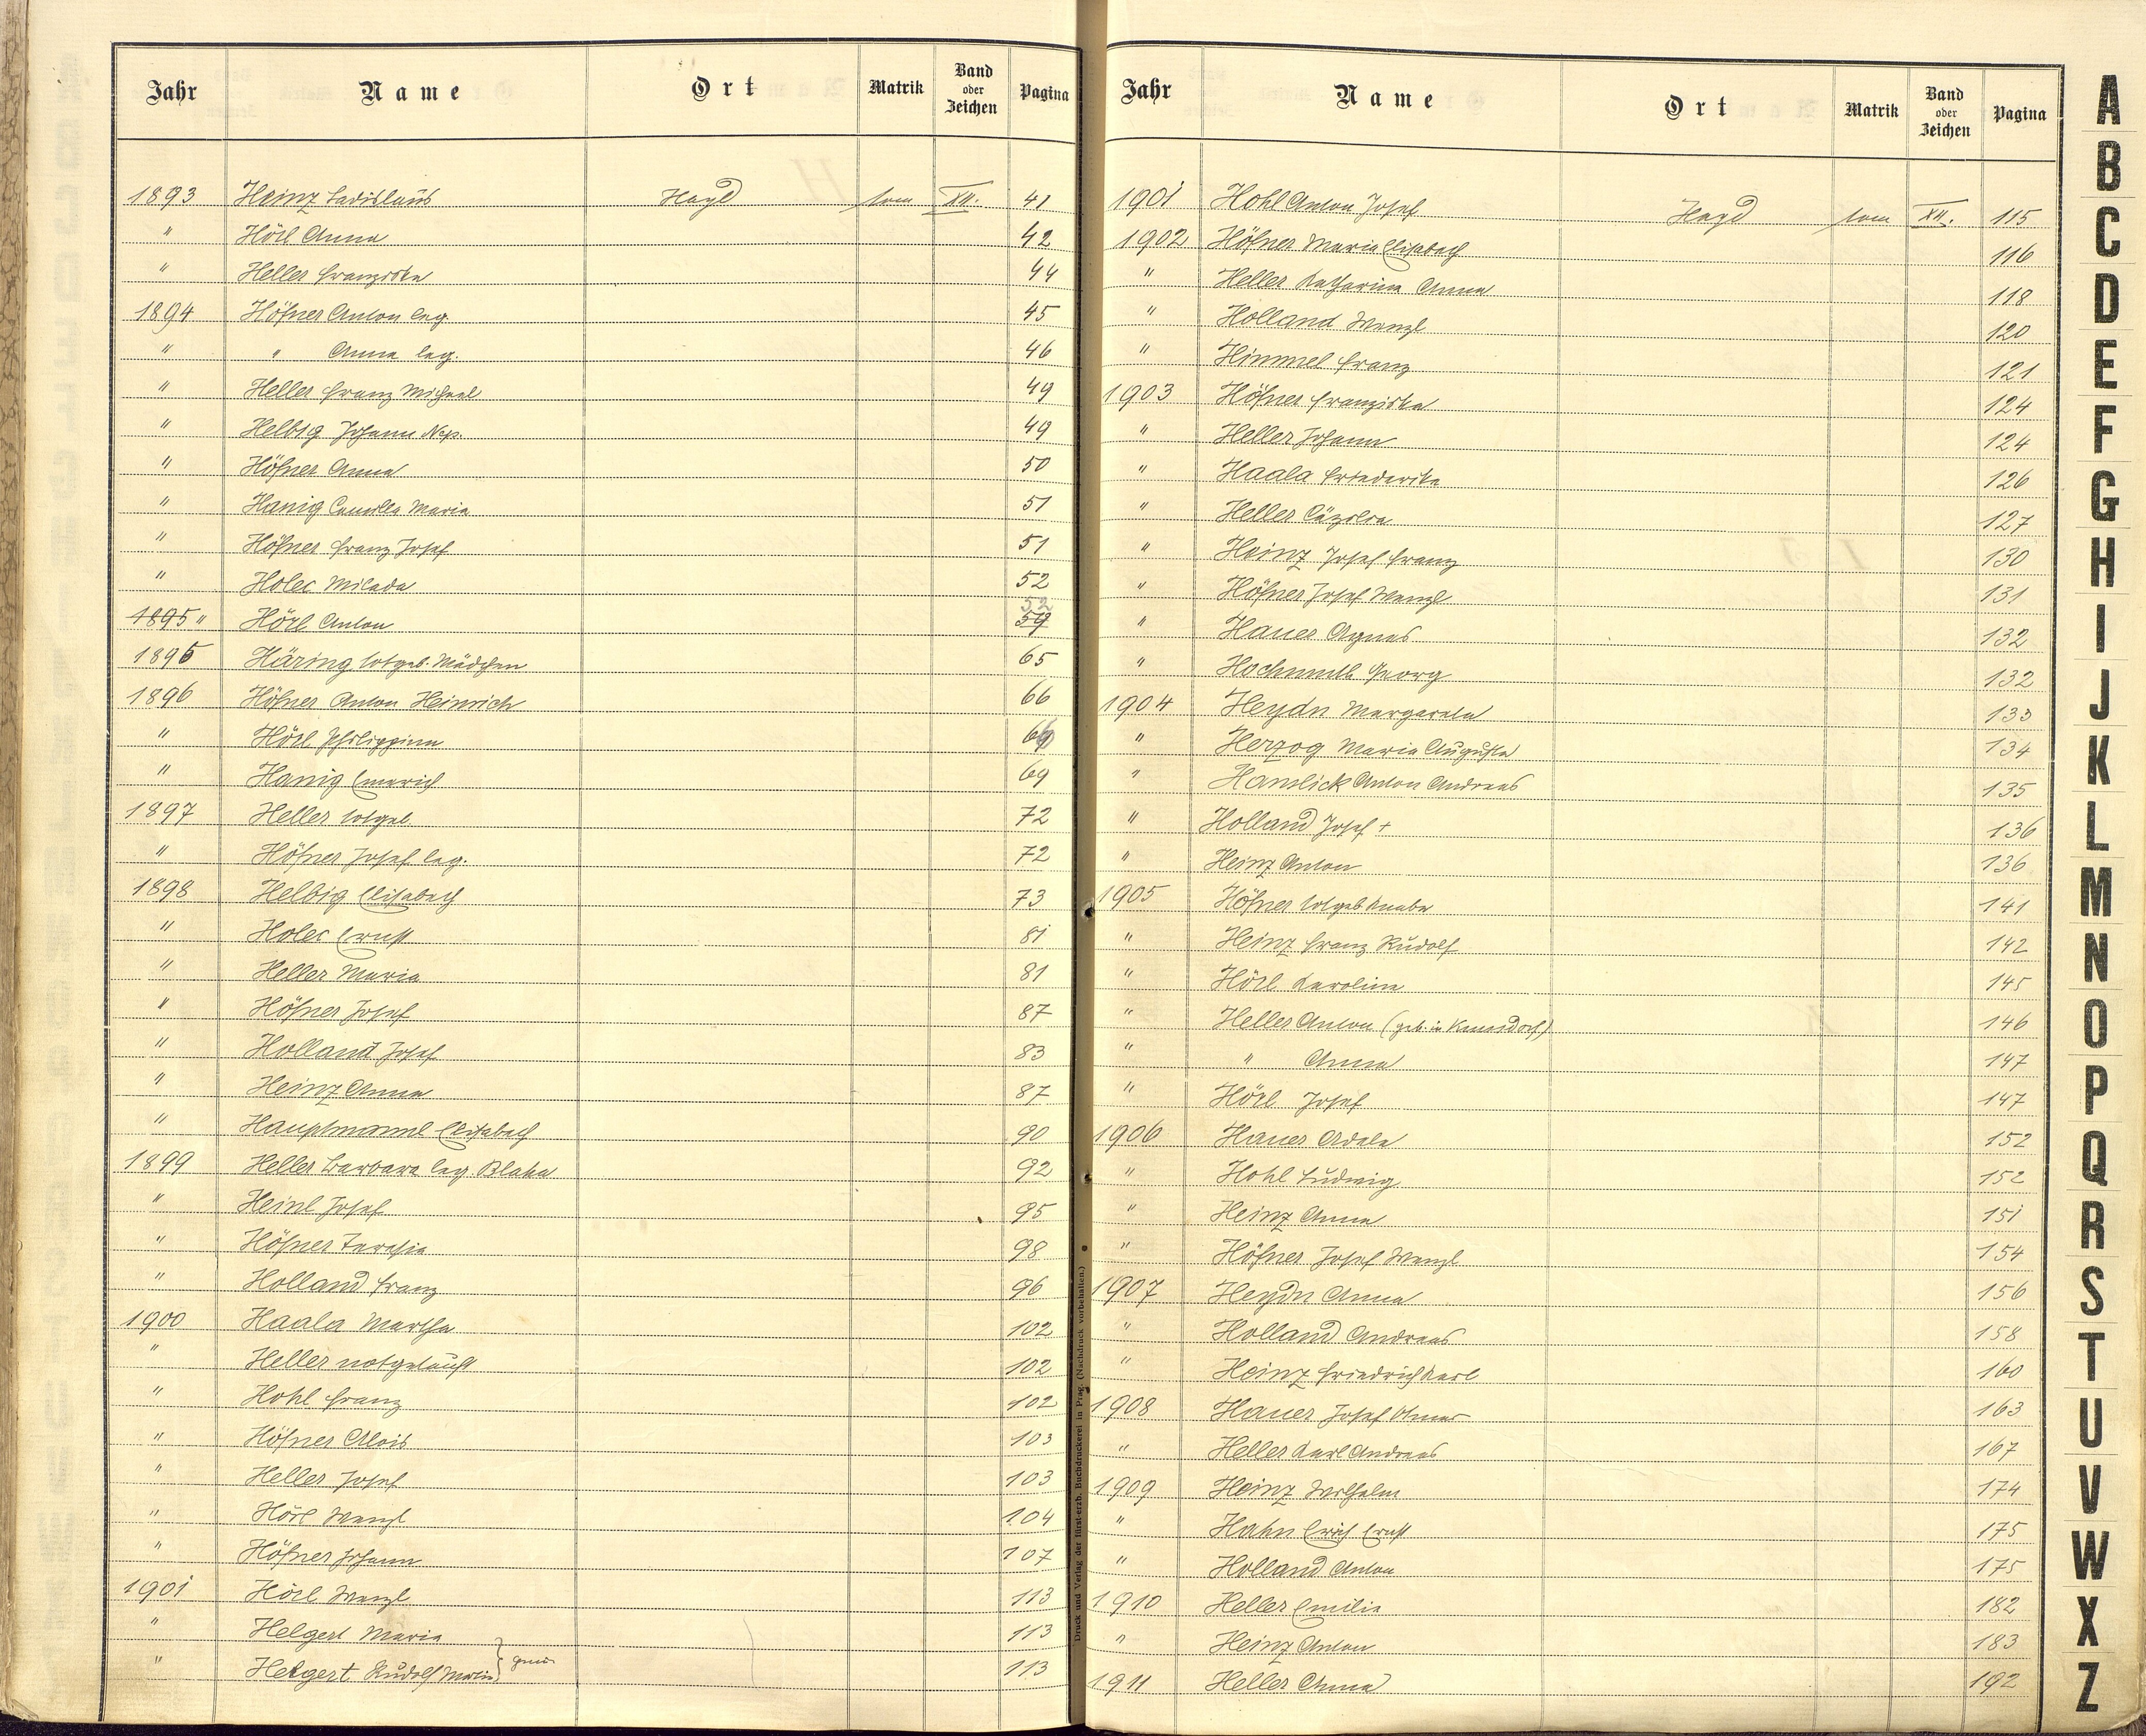 Jahr Name Ort Matrik Band oder Zeichen Pagina
1893 Heinz Ladislaus Hayd tom XII. 41
" Hörl Anna 42
" Heller Franziska 44
1894 Höfner Anton leg. 45
" " Anna leg. 46
" Heller Franz Michael 49
" Helbig Johann Nep. 49
" Höfner Anna 50
" Hanig Camilla Maria 51
" Höfner Franz Josef 51
" Holec Milada 52
52
1895 " Hörl Anton 59
1895 Häring totgeb. Mädchen 65
1896 Höfner Anton Heinrich 66
" Hörl Philippina
" Hanig Emerich 69
1897 Heller totgeb. 72
" Höfner Josef leg. 72
1898 Helbig Elisabeth 73
" Holec Ernst 81
" Heller Maria 81
" Höfner Josef 87
" Holland Josef 83
" Heinz Anna 87
" Hauptmannl Elisabeth 90
1899 Heller Barbara leg. Blaha 92
" Heinl Josef 95
" Höfner Theresia 98
" Holland Franz 96
1900 Haala Martha 102
" Heller notgetauft 102
" Hohl Franz 102
" Höfner Alois 103
" Heller Josef 103
" Hörl Wenzl 104
" Höfner Johann 107
1901 Hörl Wenzl 113
" Helgert Maria 113
" Helgert Rudolf Martin 113
Druck und Verlag der fürst-erzb. Buchdruckerei in Prag. (Nachdruck vorbehalten.)
Jahr Name Ort Matrik Band oder Zeichen Pagina
1901 Hohl Anton Josef Hayd tom XII. 115
1902 Höfner Maria Elisabeth 116
" Heller Katharina Anna 118
" Holland Wenzl 120
" Himmel Franz 121
1903 Höfner Franziska 124
" Heller Johann 124
" Haala Friederike 126
" Heller Cäzilia 127
" Heinz Josef Franz 130
" Höfner Josef Wenzl 131
" Hauer Agnes 132
" Hochmuth Georg 132
1904 Heydn Margareta 133
" Herzog Maria Augusta 134
" Hawlick Anton Andreas 135
" Holland Josef + 136
" Heinz Anton 136
1905 Höfner totgeb Knabe 141
" Heinz Franz Rudolf 142
" Hörl Karolina 145
" Heller Anton (geb. in Kunsdorf) 146
" " Anna 147
" Hörl Josef 147
1906 Hauer Adele 152
" Hohl Ludwig 152
" Heinz Anna 151
" Höfner Josef Wenzl 154
1907 Heydn Anna 156
" Holland Andreas 158
" Heinz Friedrich Karl 160
1908 Hauer Josef 163
" Heller Karl Andreas 167
1909 Heinz Wilhelm 174
" Hahn Erich Ernst 175
" Holland Anton 175
1910 Heller Emilia 182
" Heinz Anton 183
1911 Heller Anna 192
A
B
C
D
E
F
G
H
I
J
K
L
M
N
O
P
Q
R
S
T
U
V
W
X
Z